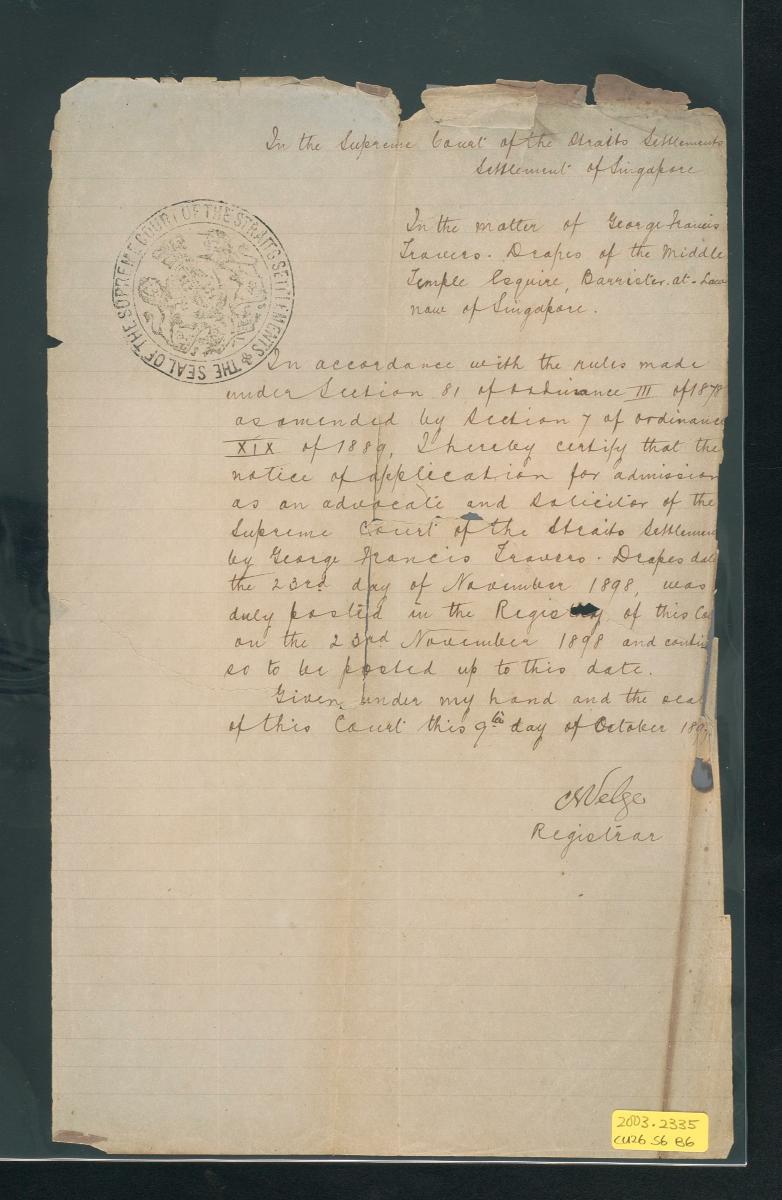 In the Supreme Court of the Straits Settlements
Settlement of Singapore
THE SEAL OF THE SUPREME COURT OF THE STRAITS SETTLEMENTS
In the matter of George Francis
Travers. Drapes of the Middle
Temple Esquire, Barrister-at-Law
now of Singapore.
In accordance with the rules made
under Section 81 of ordinance III of 1878
as amended by Section 7 of ordinance
XIX of 1889, I hereby certify that the
notice of application for admission
as an advocate and solicitor of the
Supreme Court of the Straits Settlemen
by George Francis Travers. Drapes dat
the 23rd day of November 1898, was
duly posted in the Registry of this Co
on the 23rd November 1898 and contin
so to be posted up to this date.
Given under my hand and the seal
of this Court this 9th day of October 189
Registrar
2003.2335
CU26 S6 B6